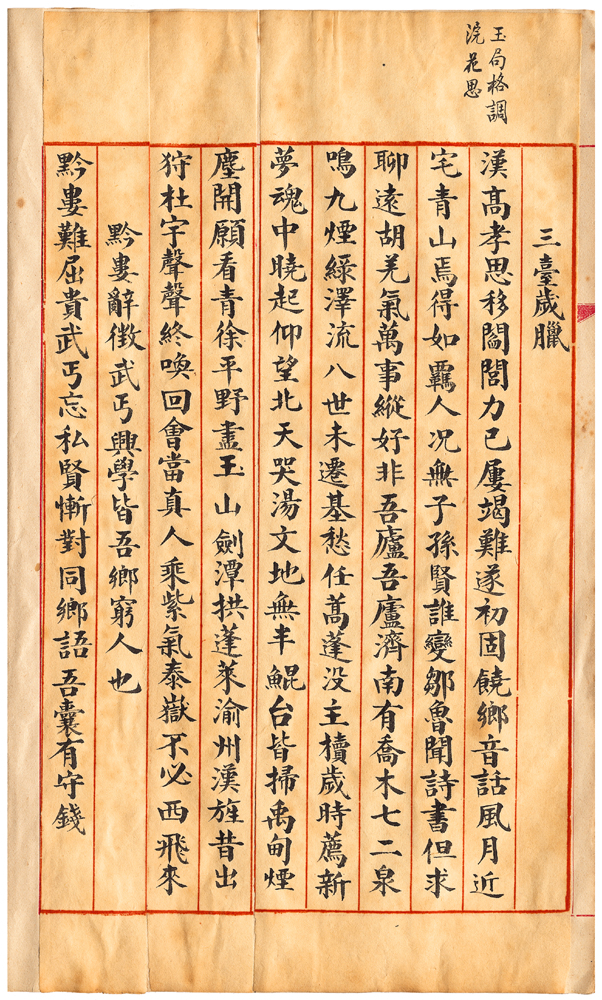 玉局格調
浣花思
三臺歲臘
漢高孝思移闔閭力已屢竭難遂初固饒鄉音話風月近
宅青山焉得如羈人况無子孫賢誰變鄒魯聞詩書但求
聊遠胡羌氣萬事縱好非吾廬吾廬濟南有喬木七二泉
鳴九煙綠澤流八世未遷基愁任蒿蓬没主櫝歲時薦新
夢魂中曉起仰望北天哭湯文地無半鯤台皆掃禹甸煙
塵開願看青徐平野盡玉山劍潭拱蓬萊渝州漢旌昔出
狩杜宇聲聲終喚回會當真人乘紫氣泰嶽不必西飛來
黔婁辭徵武丐興學皆吾鄉窮人也
黔婁難屈貴武丐忘私賢慚對同鄉語吾囊有守錢